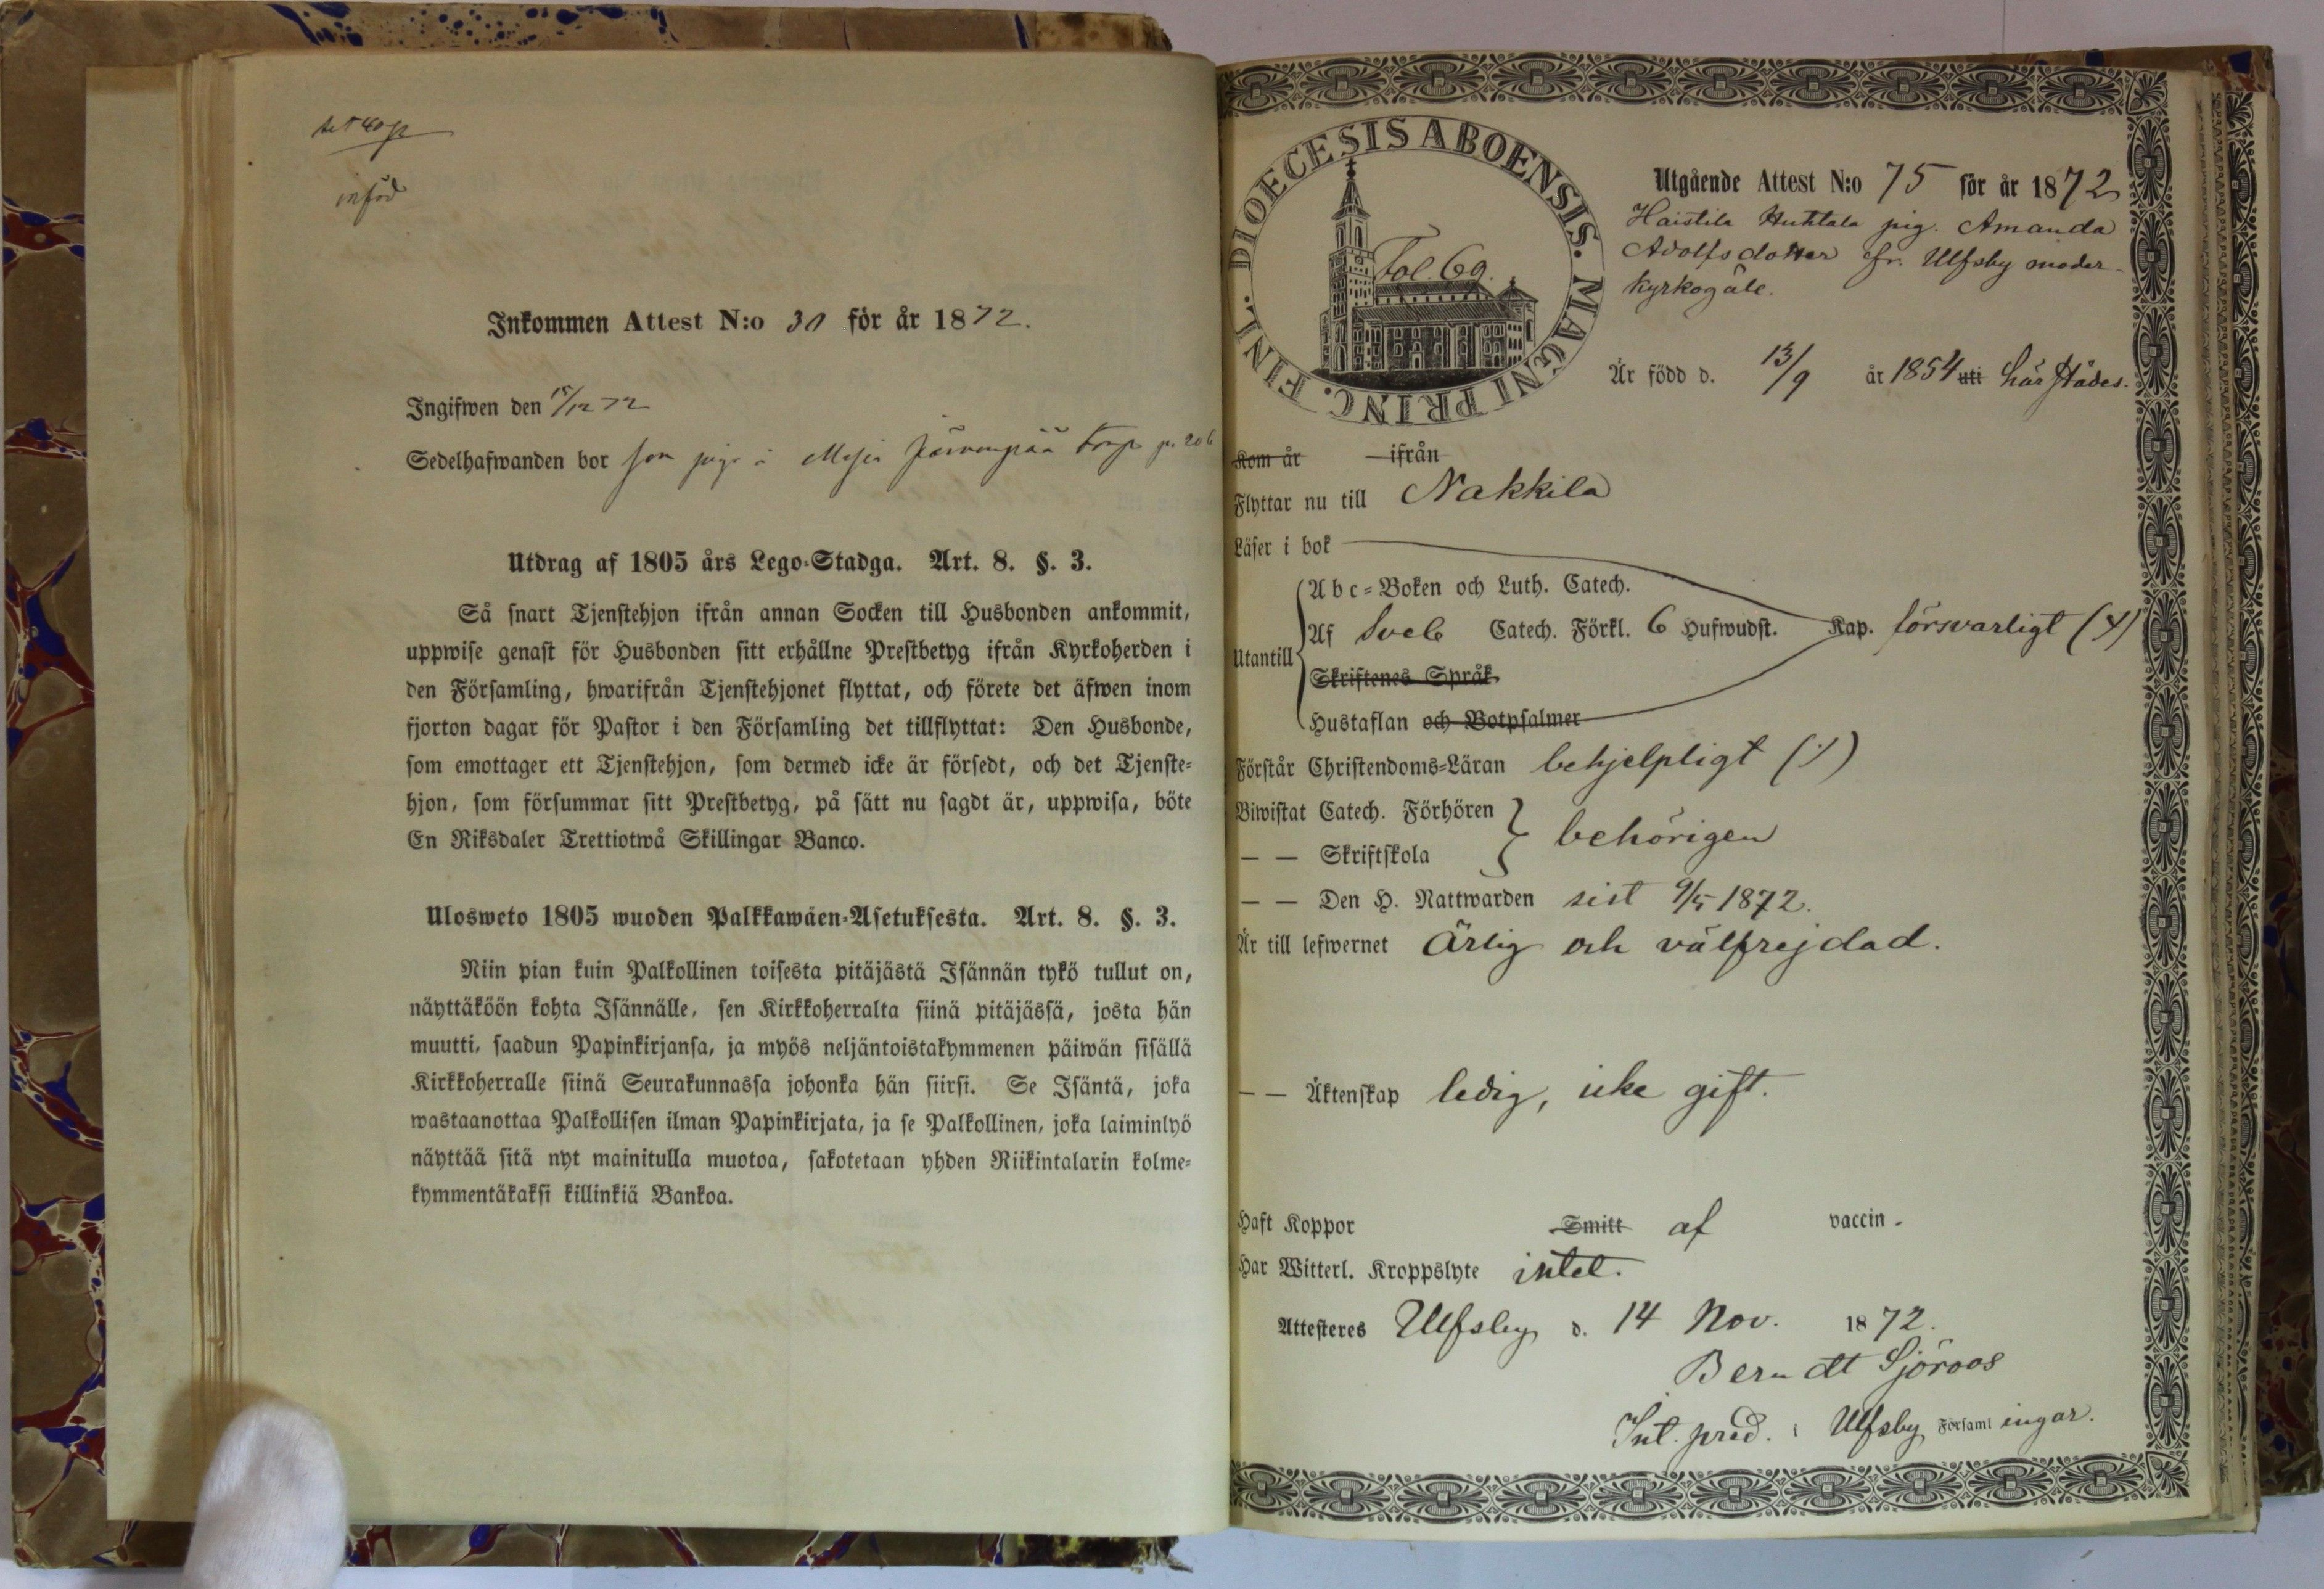 införd
Inkommen Attest N:o 30 för år 1872.
Ingifwen den 15/12 72
Sedelhafwanden bor som piga å Järvenpää torp p. 206
Utdrag af 1805 års Lego-Stadga. Art. 8. §. 3.
Så snart Tjenstehjon ifrån annan Socken till Husbonden ankommit,
uppwise genast för Husbonden sitt erhållne Prestbetyg ifrån Kyrkoherden i
den Församling, hwarifrån Tjenstehjonet flyttat, och förete det äfwen inom
fjorton dagar för Pastor i den Församling det tillflyttat: Den Husbonde,
som emottager ett Tjenstehjon, som dermed icke är försedt, och det Tjenste-
hjon, som försummar sitt Prestbetyg, på sätt nu sagdt är, uppwisa, böte
En Riksdaler Trettiotwå Skillingar Banco.
Ulosweto 1805 wuoden Palkkawäen-Asetuksesta. Art. 8. §. 3.
Niin pian kuin Palkollinen toisesta pitäjästä Isännän tykö tullut on,
näyttäköön kohta Isännälle, sen Kirkkoherralta siinä pitäjässä, josta hän
muutti, saadun Papinkirjansa, ja myös neljäntoistakymmenen päiwän sisällä
Kirkkoherralle siinä Seurakunnassa johonka hän siirsi. Se Isäntä, joka
wastaanottaa Palkollisen ilman Papinkirjata, ja se Palkollinen, joka laiminlyö
näyttää sitä nyt mainitulla muotoa, sakotetaan yhden Riikintalarin kolme-
kymmentäkaksi killinkiä Bankoa.
DIOECESIS ABOENSIS. MAGNI PRINC. FINL.
Fol. 69.
Utgående Attest N:o 75 för år 1872
Haistila Huhtala pig. Amanda
Adolfsdotter fr. Ulfsby moder-
kyrkogäll.
Är född d. 13/9 år 1854 uti härstädes.
Kom år ifrån
Flyttar nu till Nakkila
Läser i bok
Utantill
Abc-Boken och Luth. Catech.
Af Sveb Catech. Förkl. 6 Hufwudst. Kap. försvarligt
Skriftenes Språk
Hustaflan och Botpsalmer
Förstår Christendoms-Läran behjelpligt
Biwistat Catech. Förhören
— — Skriftskola
behörigen
— — Den H. Nattwarden sist 9/5 1872.
Är till lefwernet Ärlig och välfrejdad.
— — Äktenskap ledig, icke gift.
Haft Koppor Smitt af vaccin.
Har Witterl. Kroppslyte intet.
Attesteres Ulfsby d. 14 Nov. 1872.
Berndt Sjöroos
Int. pred. i Ulfsby Församlingar.